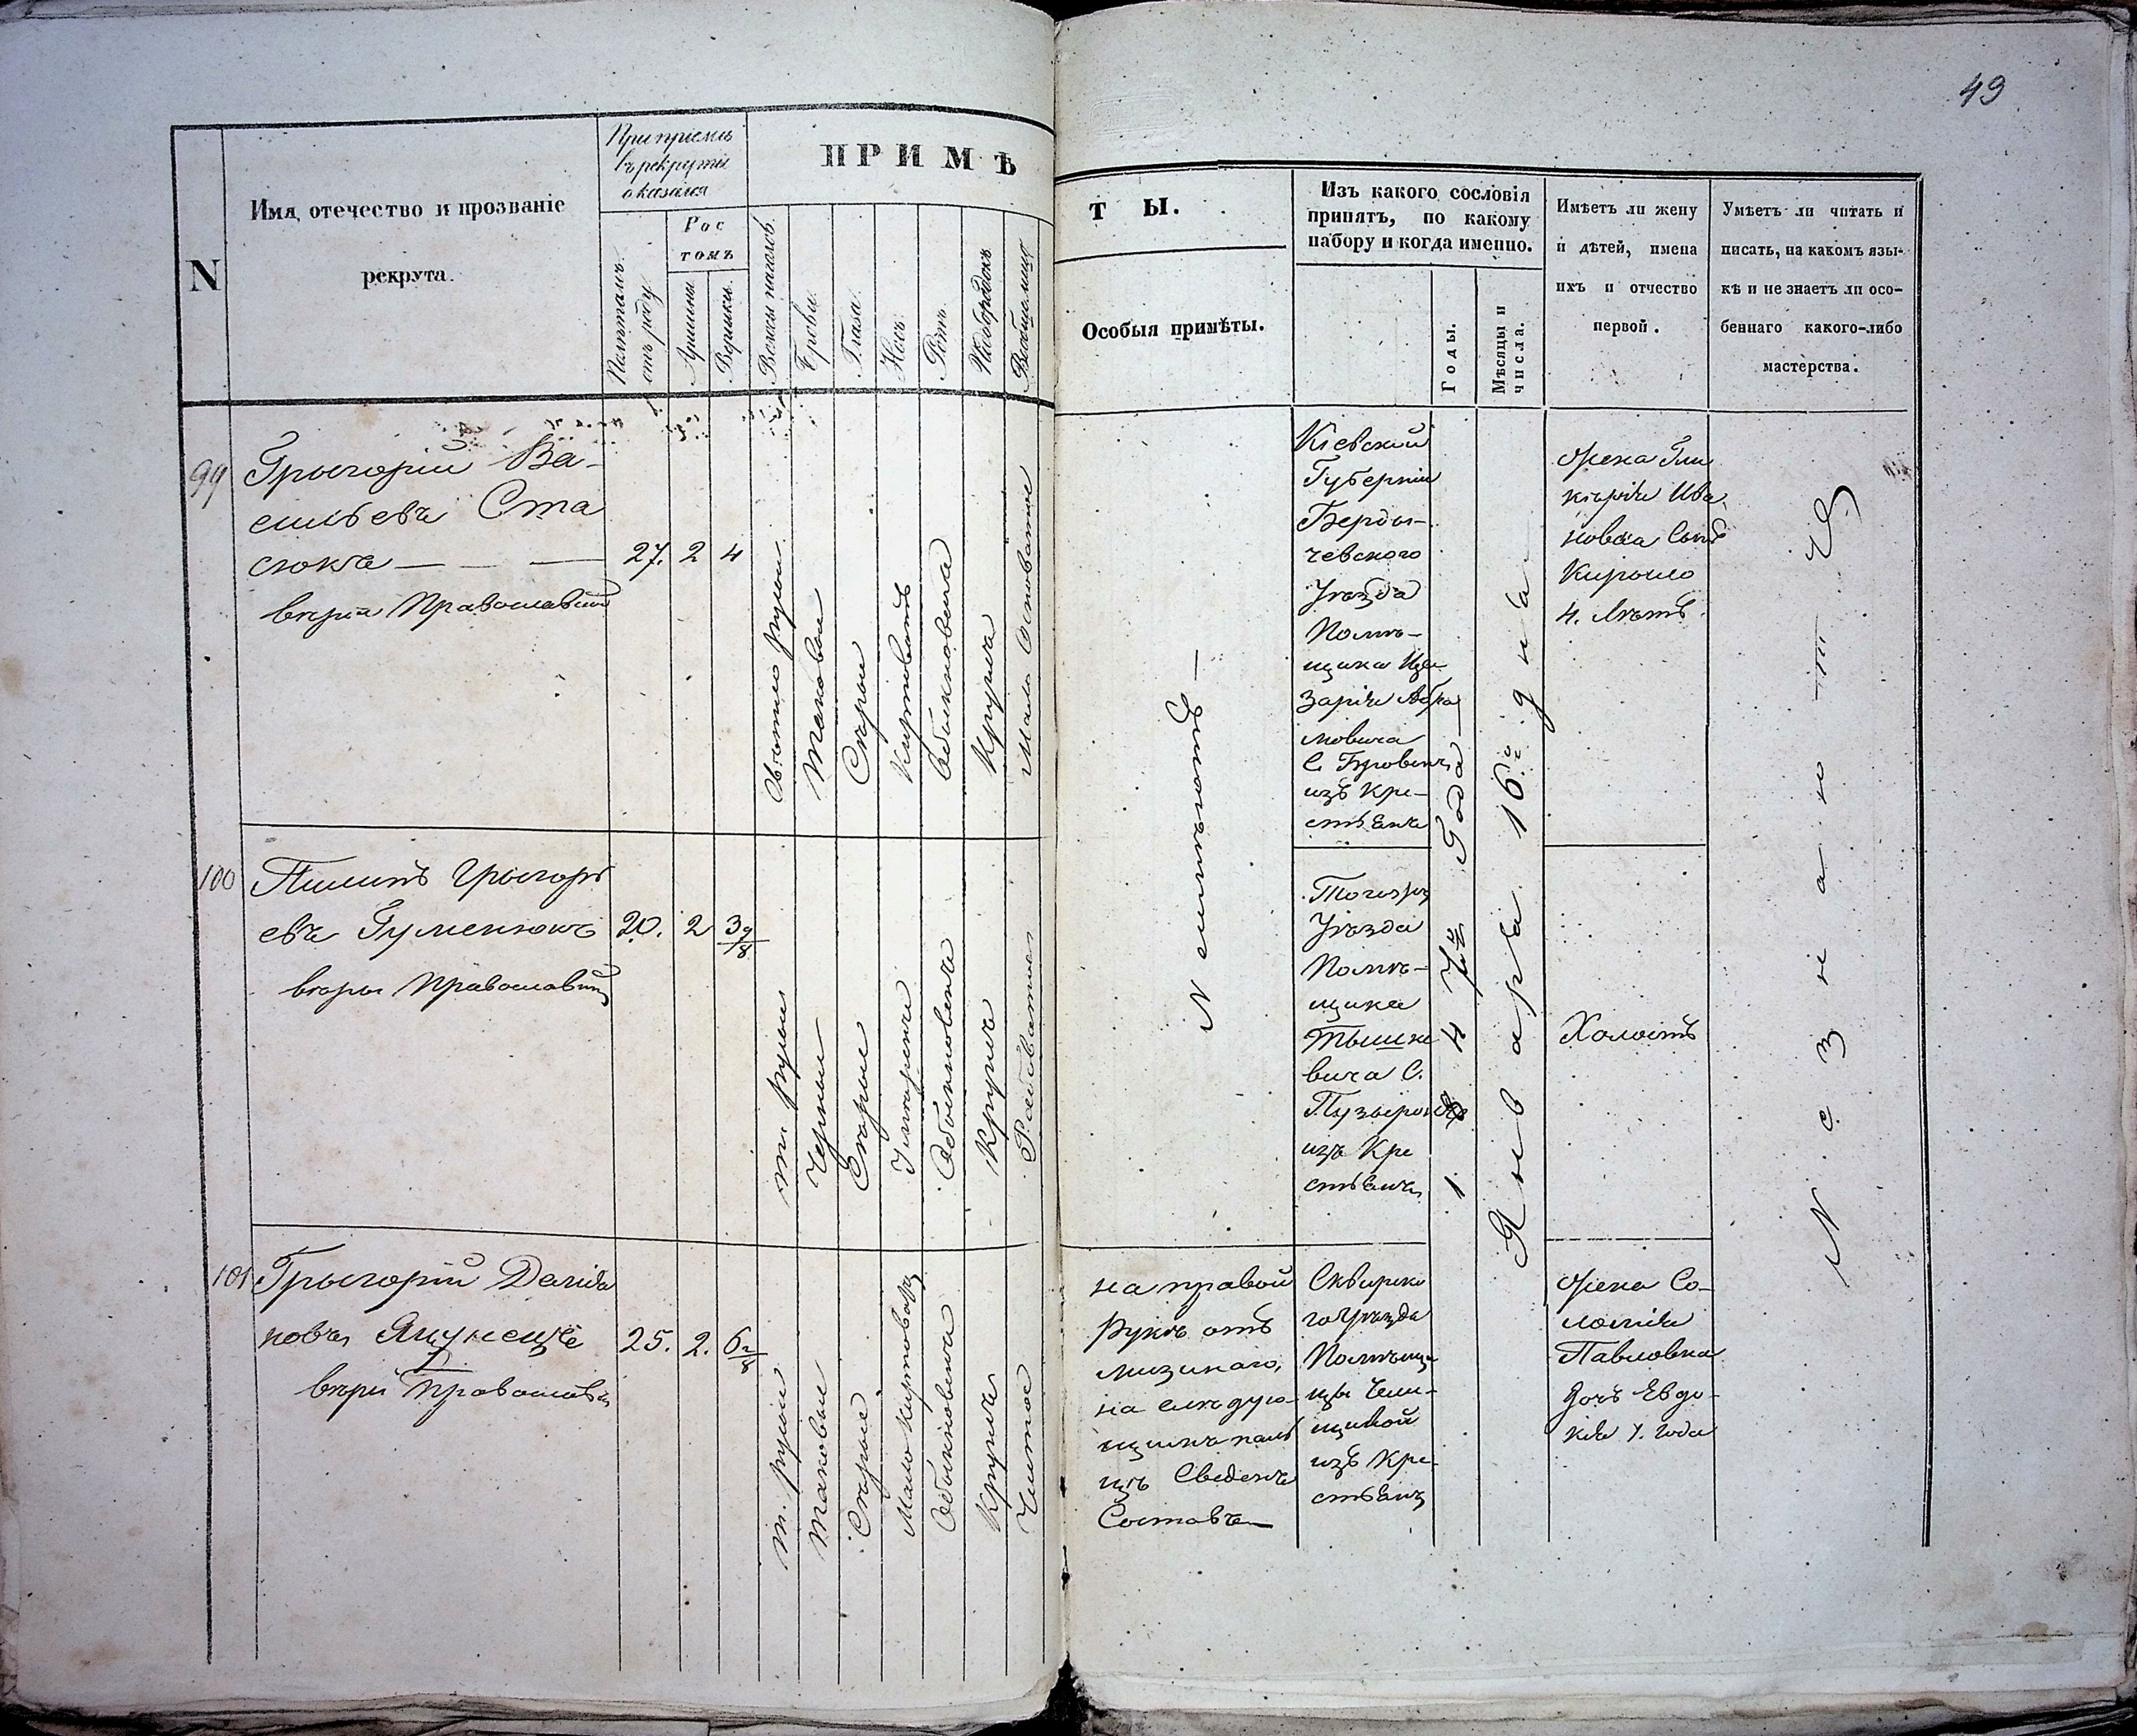 49
N
Имя, отечество и прозваніе
рекрута.
При пріемѣ
въ рекруты
оказался
Лѣтъ
отъ роду.
Рос
томъ
Аршины
Вершки.
ПРИМѢ
Брови.
Глаза.
Носъ.
Ротъ.
Подбородокъ
Вообще лице
ТЫ.
Особыя примѣты.
Изъ какого сословія
принятъ, по какому
набору и когда именно.
Годы.
Мѣсяцы и
числа.
Имѣетъ ли жену
и дѣтей, имена
ихъ и отчество
первой.
Умѣетъ ли читать и
писать, на какомъ язы-
кѣ и не знаетъ ли осо-
беннаго какого-либо
мастерства.
99
Григорій Ва-
сильевъ Ста
сюкъ — — —
вѣры Православной
27. 2 4
Свѣтло русыи
Таковыи
Сѣрыи
Курноватъ
Обыкновена
Кругла
Мало Осповатое
Неимѣетъ —
Кіевской
Губерніи
Берды-
чевского
Уѣзда
Помѣ-
щика Це
зарія Абра
мовича
изъ Кре-
стьянъ
184 Года
Января 16го дня
Жена Гли
керія Ива
новна Сынъ
Кирило
4. Лѣтъ.
Незнаетъ
100
Пилипъ Григорь
евъ Гуменюкъ
вѣры Православной
20. 2 3
т. русыи
Черныи
Сѣрыи
Умѣренъ
Обыкновенъ
Кругла
Рябоватое
Тогожъ
Уѣзда
Помѣ-
щика
Тышке
вича С.
изъ Кре
стьянъ
Холостъ
101
Григорій Данила
новъ
вѣры Православной
25. 2. 6 2/8
т. русыи
Таковыи
Сѣрые
Мало Курноватъ
Обыкновенъ
Кругла
Чистое
на правой
Рукѣ отъ
мизинаго,
на слѣдую-
щимъ паль
цѣ Сведенъ
Составъ —
Сквирско
го Уѣзда
Помѣщи
цы
изъ Кре-
стьянъ
Жена Со-
ломія
Павловна
Дочь Евдо-
кія 1. года